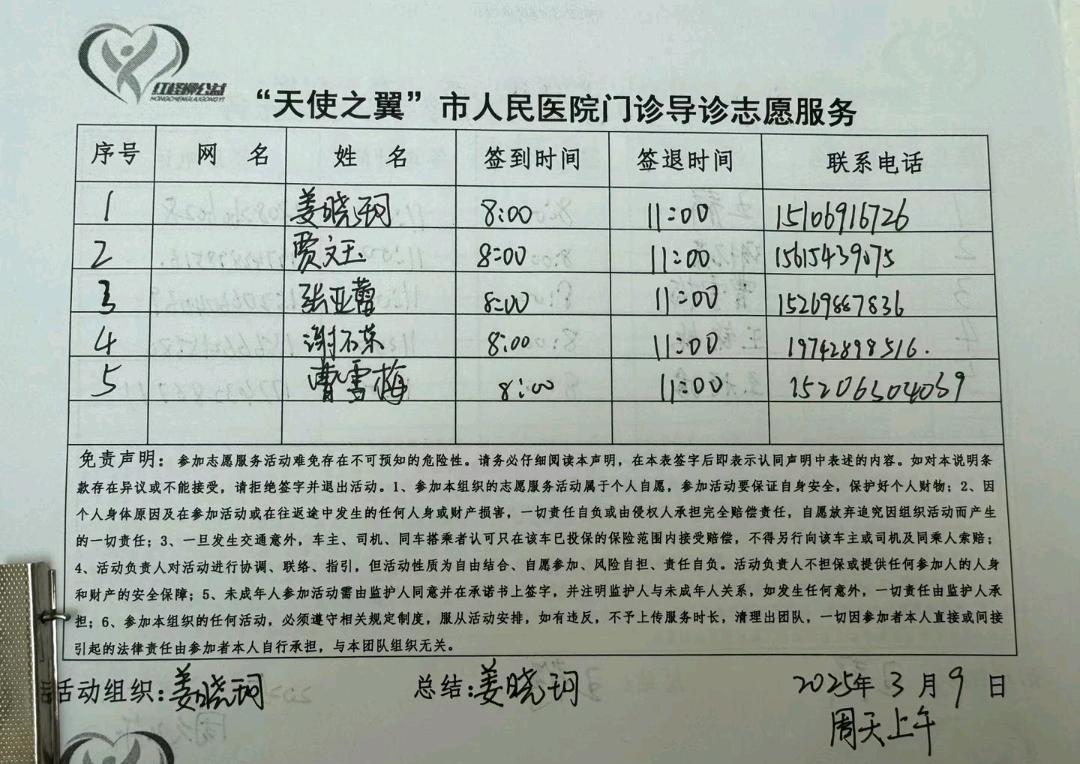 红橙黎公益
“天使之翼”市人民医院门诊导诊志愿服务
序号 网 名 姓 名 签到时间 签退时间 联系电话
1 姜晓珂 8:00 11:00 15106916726
2 贾文玉 8:00 11:00 15615439075
3 张亚蕾 8:00 11:00 15269887836
4 谢石荣 8:00 11:00 19742898516.
5 曹雪梅 8:00 11:00 15206504069
免责声明:参加志愿服务活动难免存在不可预知的危险性。请务必仔细阅读本声明,在本表签字后即表示认同声明中表述的内容。如对本说明条
款存在异议或不能接受,请拒绝签字并退出活动。1、参加本组织的志愿服务活动属于个人自愿,参加活动要保证自身安全,保护好个人财物;2、因
个人身体原因及在参加活动或在往返途中发生的任何人身或财产损害,一切责任自负或由侵权人承担完全赔偿责任,自愿放弃追究因组织活动而产生
的一切责任;3、一旦发生交通意外,车主、司机、同车搭乘者认可只在该车已投保的保险范围内接受赔偿,不得另行向该车主或司机及同乘人索赔;
4、活动负责人对活动进行协调、联络、指引,但活动性质为自由结合、自愿参加、风险自担、责任自负。活动负责人不担保或提供任何参加人的人身
和财产的安全保障;5、未成年人参加活动需由监护人同意并在承诺书上签字,并注明监护人与未成年人关系,如发生任何意外,一切责任由监护人承
担;6、参加本组织的任何活动,必须遵守相关规定制度,服从活动安排,如有违反,不予上传服务时长,清理出团队,一切因参加者本人直接或间接
引起的法律责任由参加者本人自行承担,与本团队组织无关。
活动组织:姜晓珂 总结:姜晓珂 2025年3月9日
周天上午